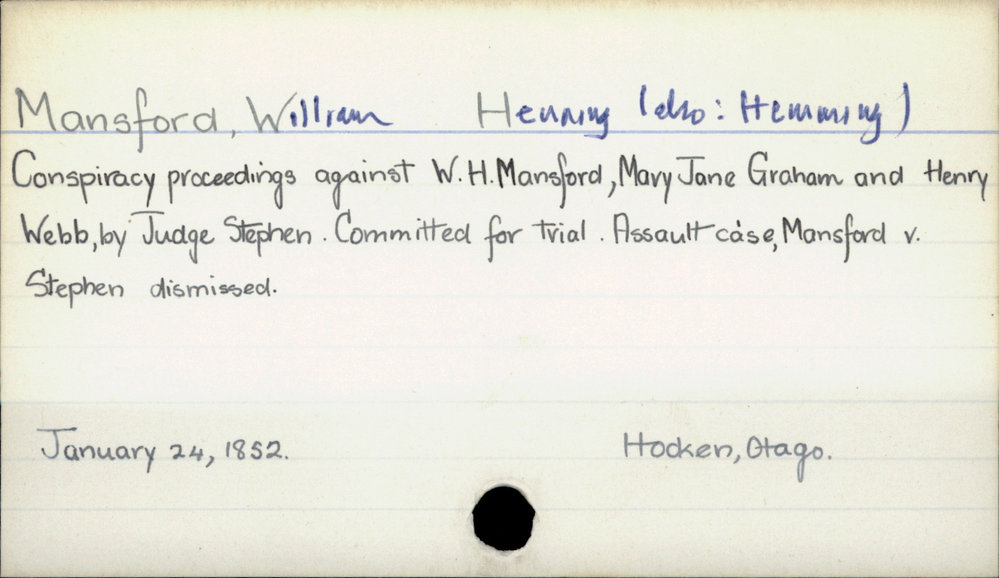 Mansford, William Henning (also: Hemming)
Conspiracy proceedings against W.H. Mansford, Mary Jane Graham and Henry
Webb, by Judge Stephen. Committed for trial. Assault case, Mansford v.
Stephen dismissed.
January 24, 1852. Hocken, Otago.